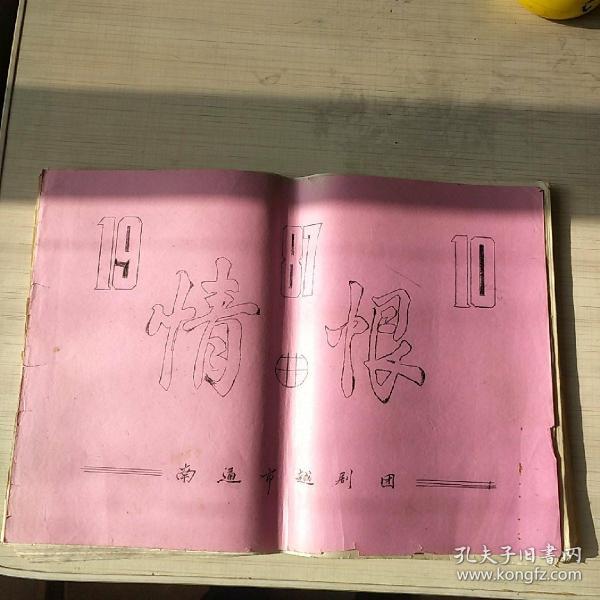 19 87 10
情 恨
南通市越剧团
孔夫子旧书网
www.kongfz.com